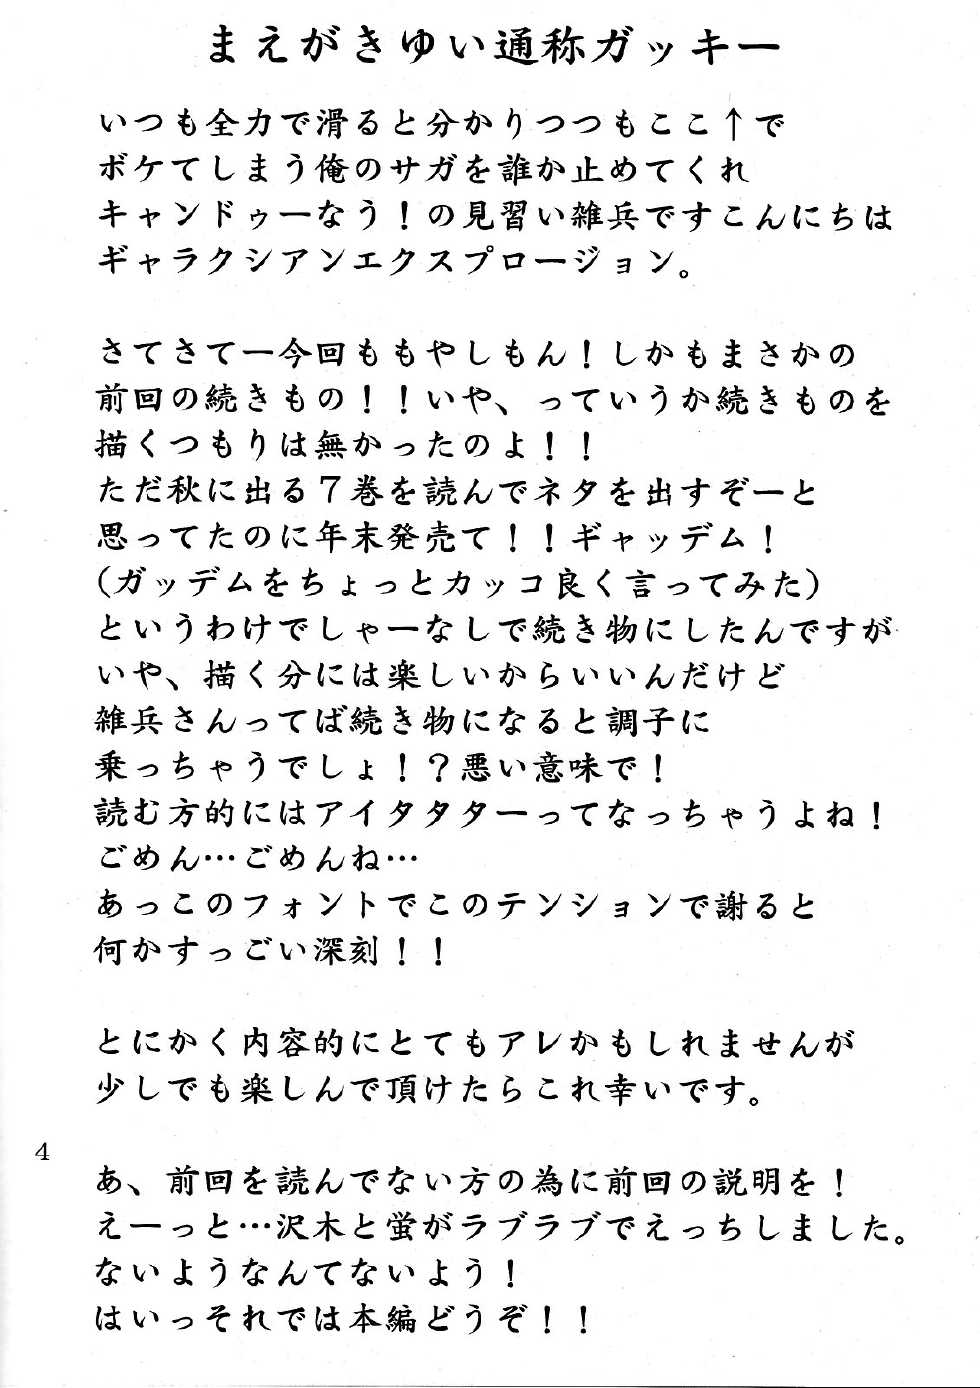 まえがきゆい通称ガッキー
いつも全力で滑ると分かりつつもここ↑で
ボケてしまう俺のサガを誰か止めてくれ
キャンドゥーなう！の見習い雑兵ですこんにちは
ギャラクシアンエクスプロージョン。
さてさてー今回ももやしもん！しかもまさかの
前回の続きもの！！いや、っていうか続きものを
描くつもりは無かったのよ！！
ただ秋に出る７巻を読んでネタを出すぞーと
思ってたのに年末発売て！！ギャッデム！
（ガッデムをちょっとカッコ良く言ってみた）
というわけでしゃーなしで続き物にしたんですが
いや、描く分には楽しいからいいんだけど
雑兵さんってば続き物になると調子に
乗っちゃうでしょ！？悪い意味で！
読む方的にはアイタタターってなっちゃうよね！
ごめん…ごめんね…
あっこのフォントでこのテンションで謝ると
何かすっごい深刻！！
とにかく内容的にとてもアレかもしれませんが
少しでも楽しんで頂けたらこれ幸いです。
4
あ、前回を読んでない方の為に前回の説明を！
えーっと…沢木と蛍がラブラブでえっちしました。
ないようなんてないよう！
はいっそれでは本編どうぞ！！